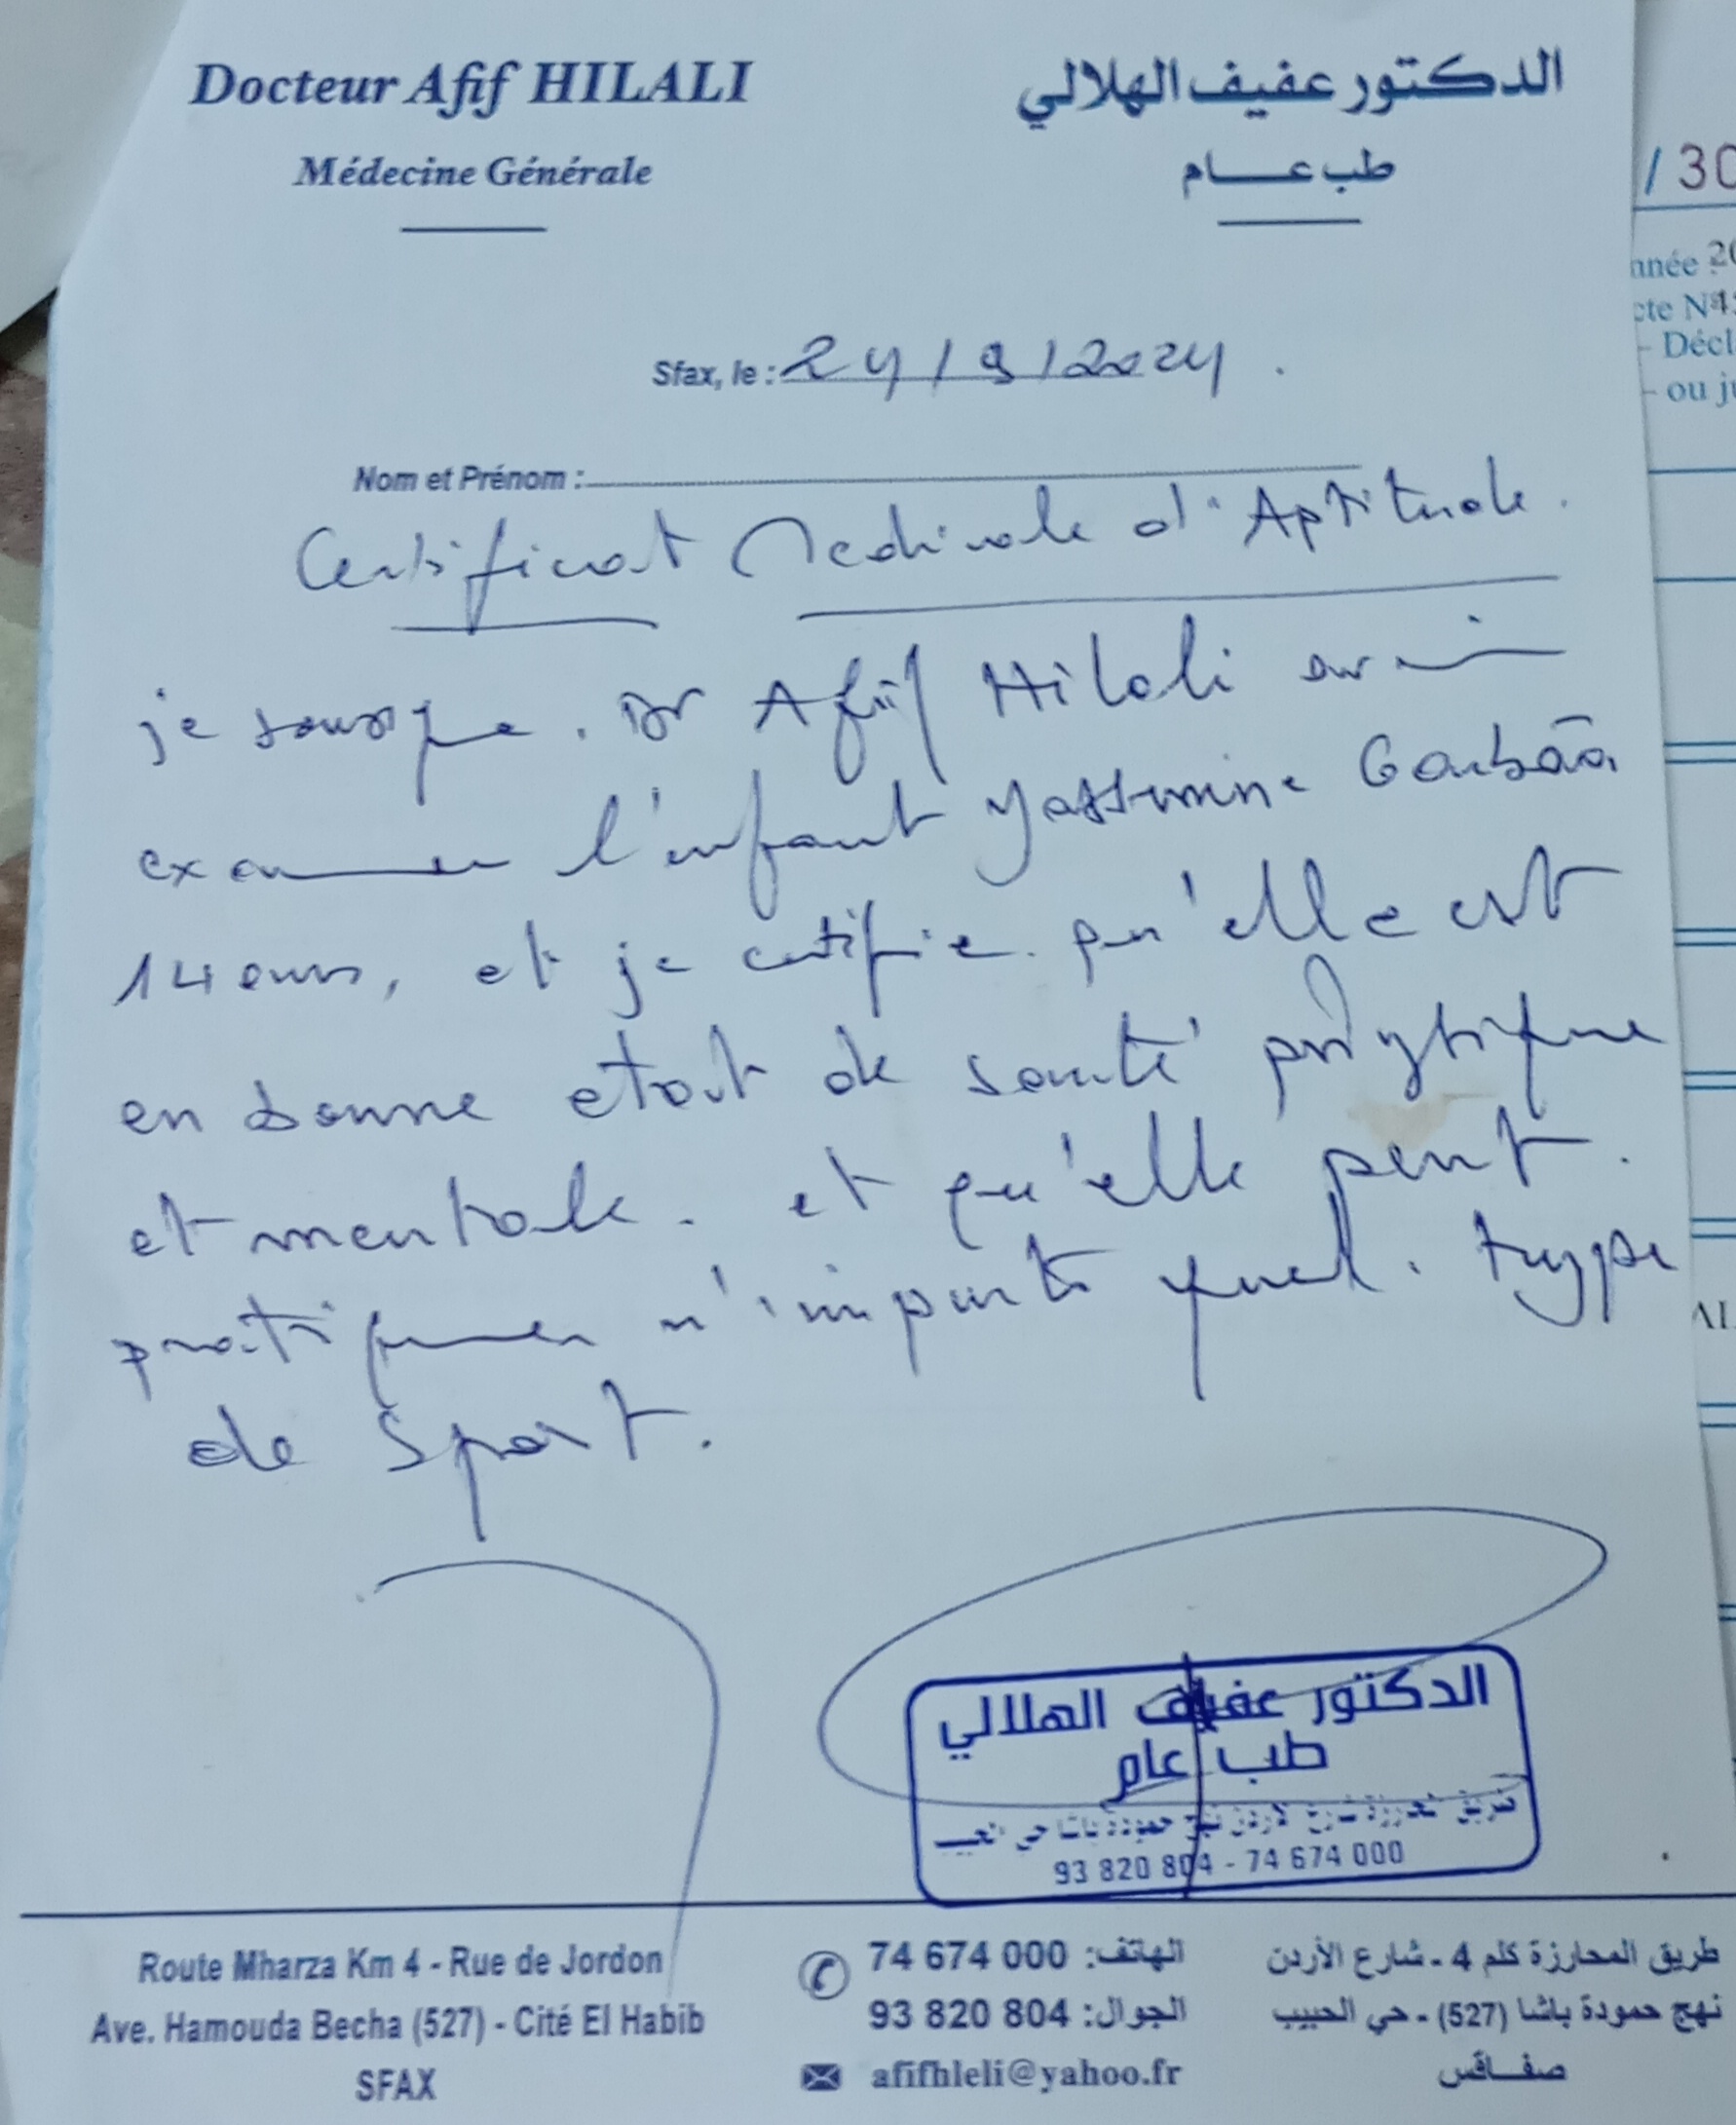 Docteur Afif HILALI
الدكتور عفيف الهلالي
Médecine Générale
طب عــــام
Sfax, le : 24 / 9 / 2024
Nom et Prénom :
Certificat Medicale d'Aptitude.
je soussigne. Dr Afif Hilali avoir
examiner l'enfant Yassmine Garbâa
14 ans, et je certifie qu'elle est
en bonne etat de santé physique
et mentale. et qu'elle peut.
pratiquer n'importe quel. type
de Sport.
الدكتور عفيف الهلالي
طب عام
93 820 804 - 74 674 000
Route Mharza Km 4 - Rue de Jordon
Ave. Hamouda Becha (527) - Cité El Habib
SFAX
الهاتف: 74 674 000
الجوال: 93 820 804
afifhleli@yahoo.fr
طريق المحارزة كلم 4 - شارع الأردن
نهج حمودة باشا (527) - حي الحبيب
صفــاقس
/ 30
nnée 20
cte N°
- Décl
- ou ju